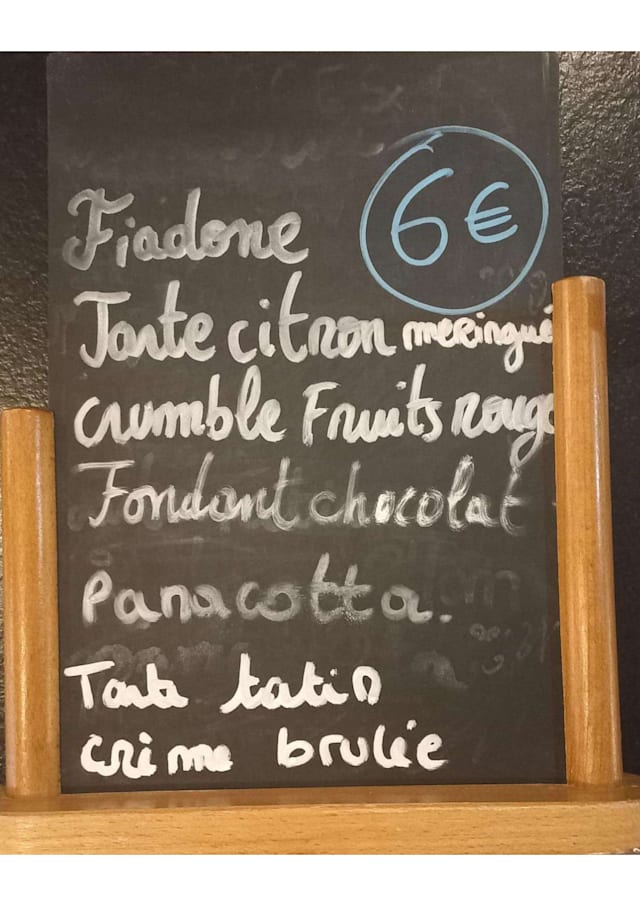 6€
Fiadone
Tarte citron meringué
crumble Fruits rouge
Fondant chocolat
Panacotta.
Tarte tatin
crème brulée